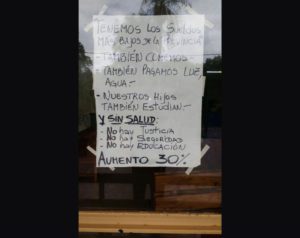 TENEMOS LOS SUELDOS
MAS BAJOS DE LA PROVINCIA
- TAMBIÉN COMEMOS -
- TAMBIÉN PAGAMOS LUZ,
AGUA.-
- NUESTROS HIJOS
TAMBIÉN ESTUDIAN.-
Y SIN SALUD:
- No hay JUSTICIA
- No hay SEGURIDAD
- No hay EDUCACIÓN
AUMENTO 30%